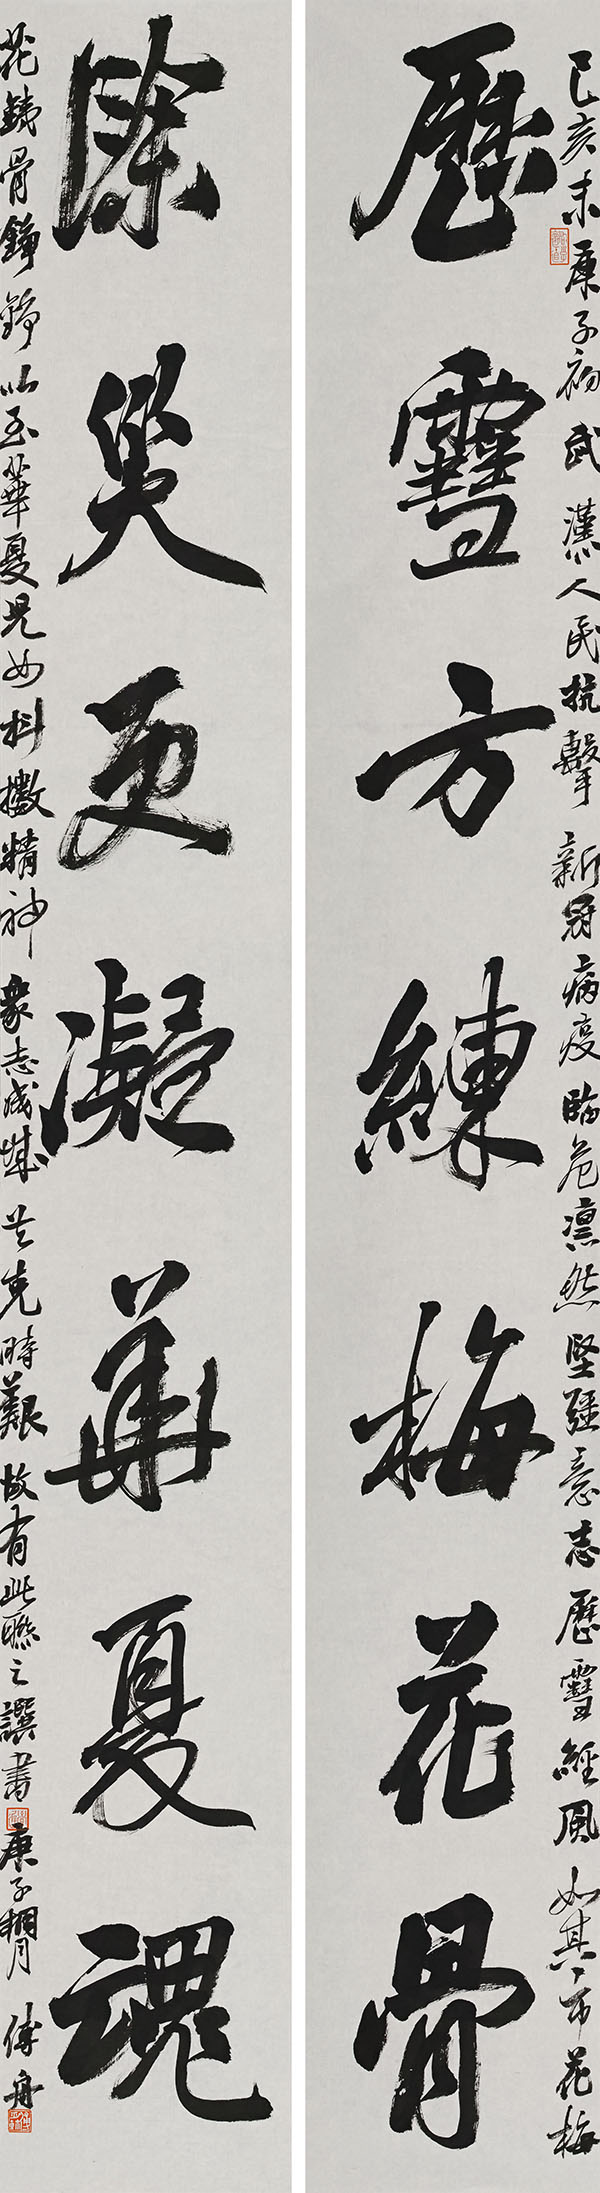 己亥末庚子初武漢人民抗擊新冠病疫臨危凛然堅彊意志歷雪經風如其市花梅
歷雪方練梅花骨
除災更凝華夏魂
花鐵骨錚錚以至華夏兒女抖擻精神衆志成城共克時艱故有此聯之譔書庚子月傅舟